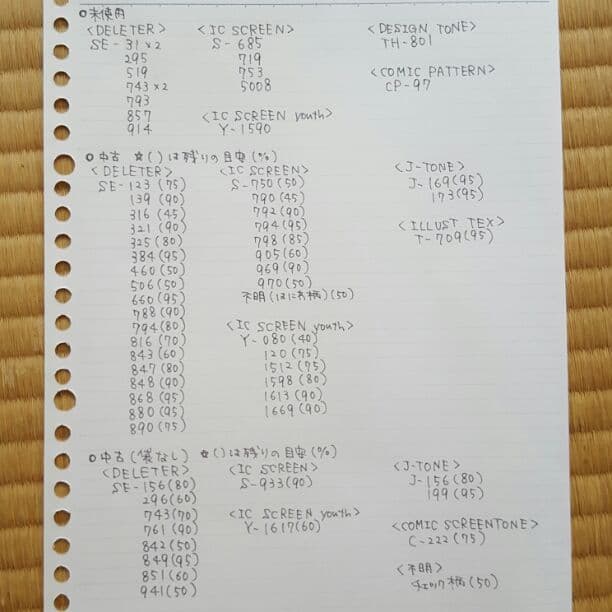 ○未使用
<DELETER>
SE-31×2
295
519
743×2
793
857
914
<IC SCREEN>
S-685
719
753
5008
<IC SCREEN youth>
Y-1590
<DESIGN TONE>
TH-801
<COMIC PATTERN>
CP-97
○中古 ☆()は残りの目安(%)
<DELETER>
SE-123(75)
139(90)
316(45)
321(90)
325(80)
384(95)
460(50)
506(50)
660(95)
788(90)
794(80)
816(70)
843(60)
847(80)
848(90)
868(95)
880(95)
890(75)
<IC SCREEN>
S-750(50)
790(45)
792(90)
794(95)
798(85)
905(60)
969(90)
970(50)
不明(はにわ柄)(50)
<IC SCREEN youth>
Y-080(40)
120(75)
1512(75)
1598(80)
1613(90)
1669(90)
<J-TONE>
J-169(95)
173(95)
<ILLUST TEX>
T-709(95)
○中古(袋なし) ☆()は残りの目安(%)
<DELETER>
SE-156(80)
296(60)
743(70)
761(90)
842(50)
849(95)
851(60)
941(50)
<IC SCREEN>
S-933(90)
<IC SCREEN youth>
Y-1617(60)
<J-TONE>
J-156(80)
199(95)
<COMIC SCREENTONE>
C-222(75)
<不明>
チェック柄(50)